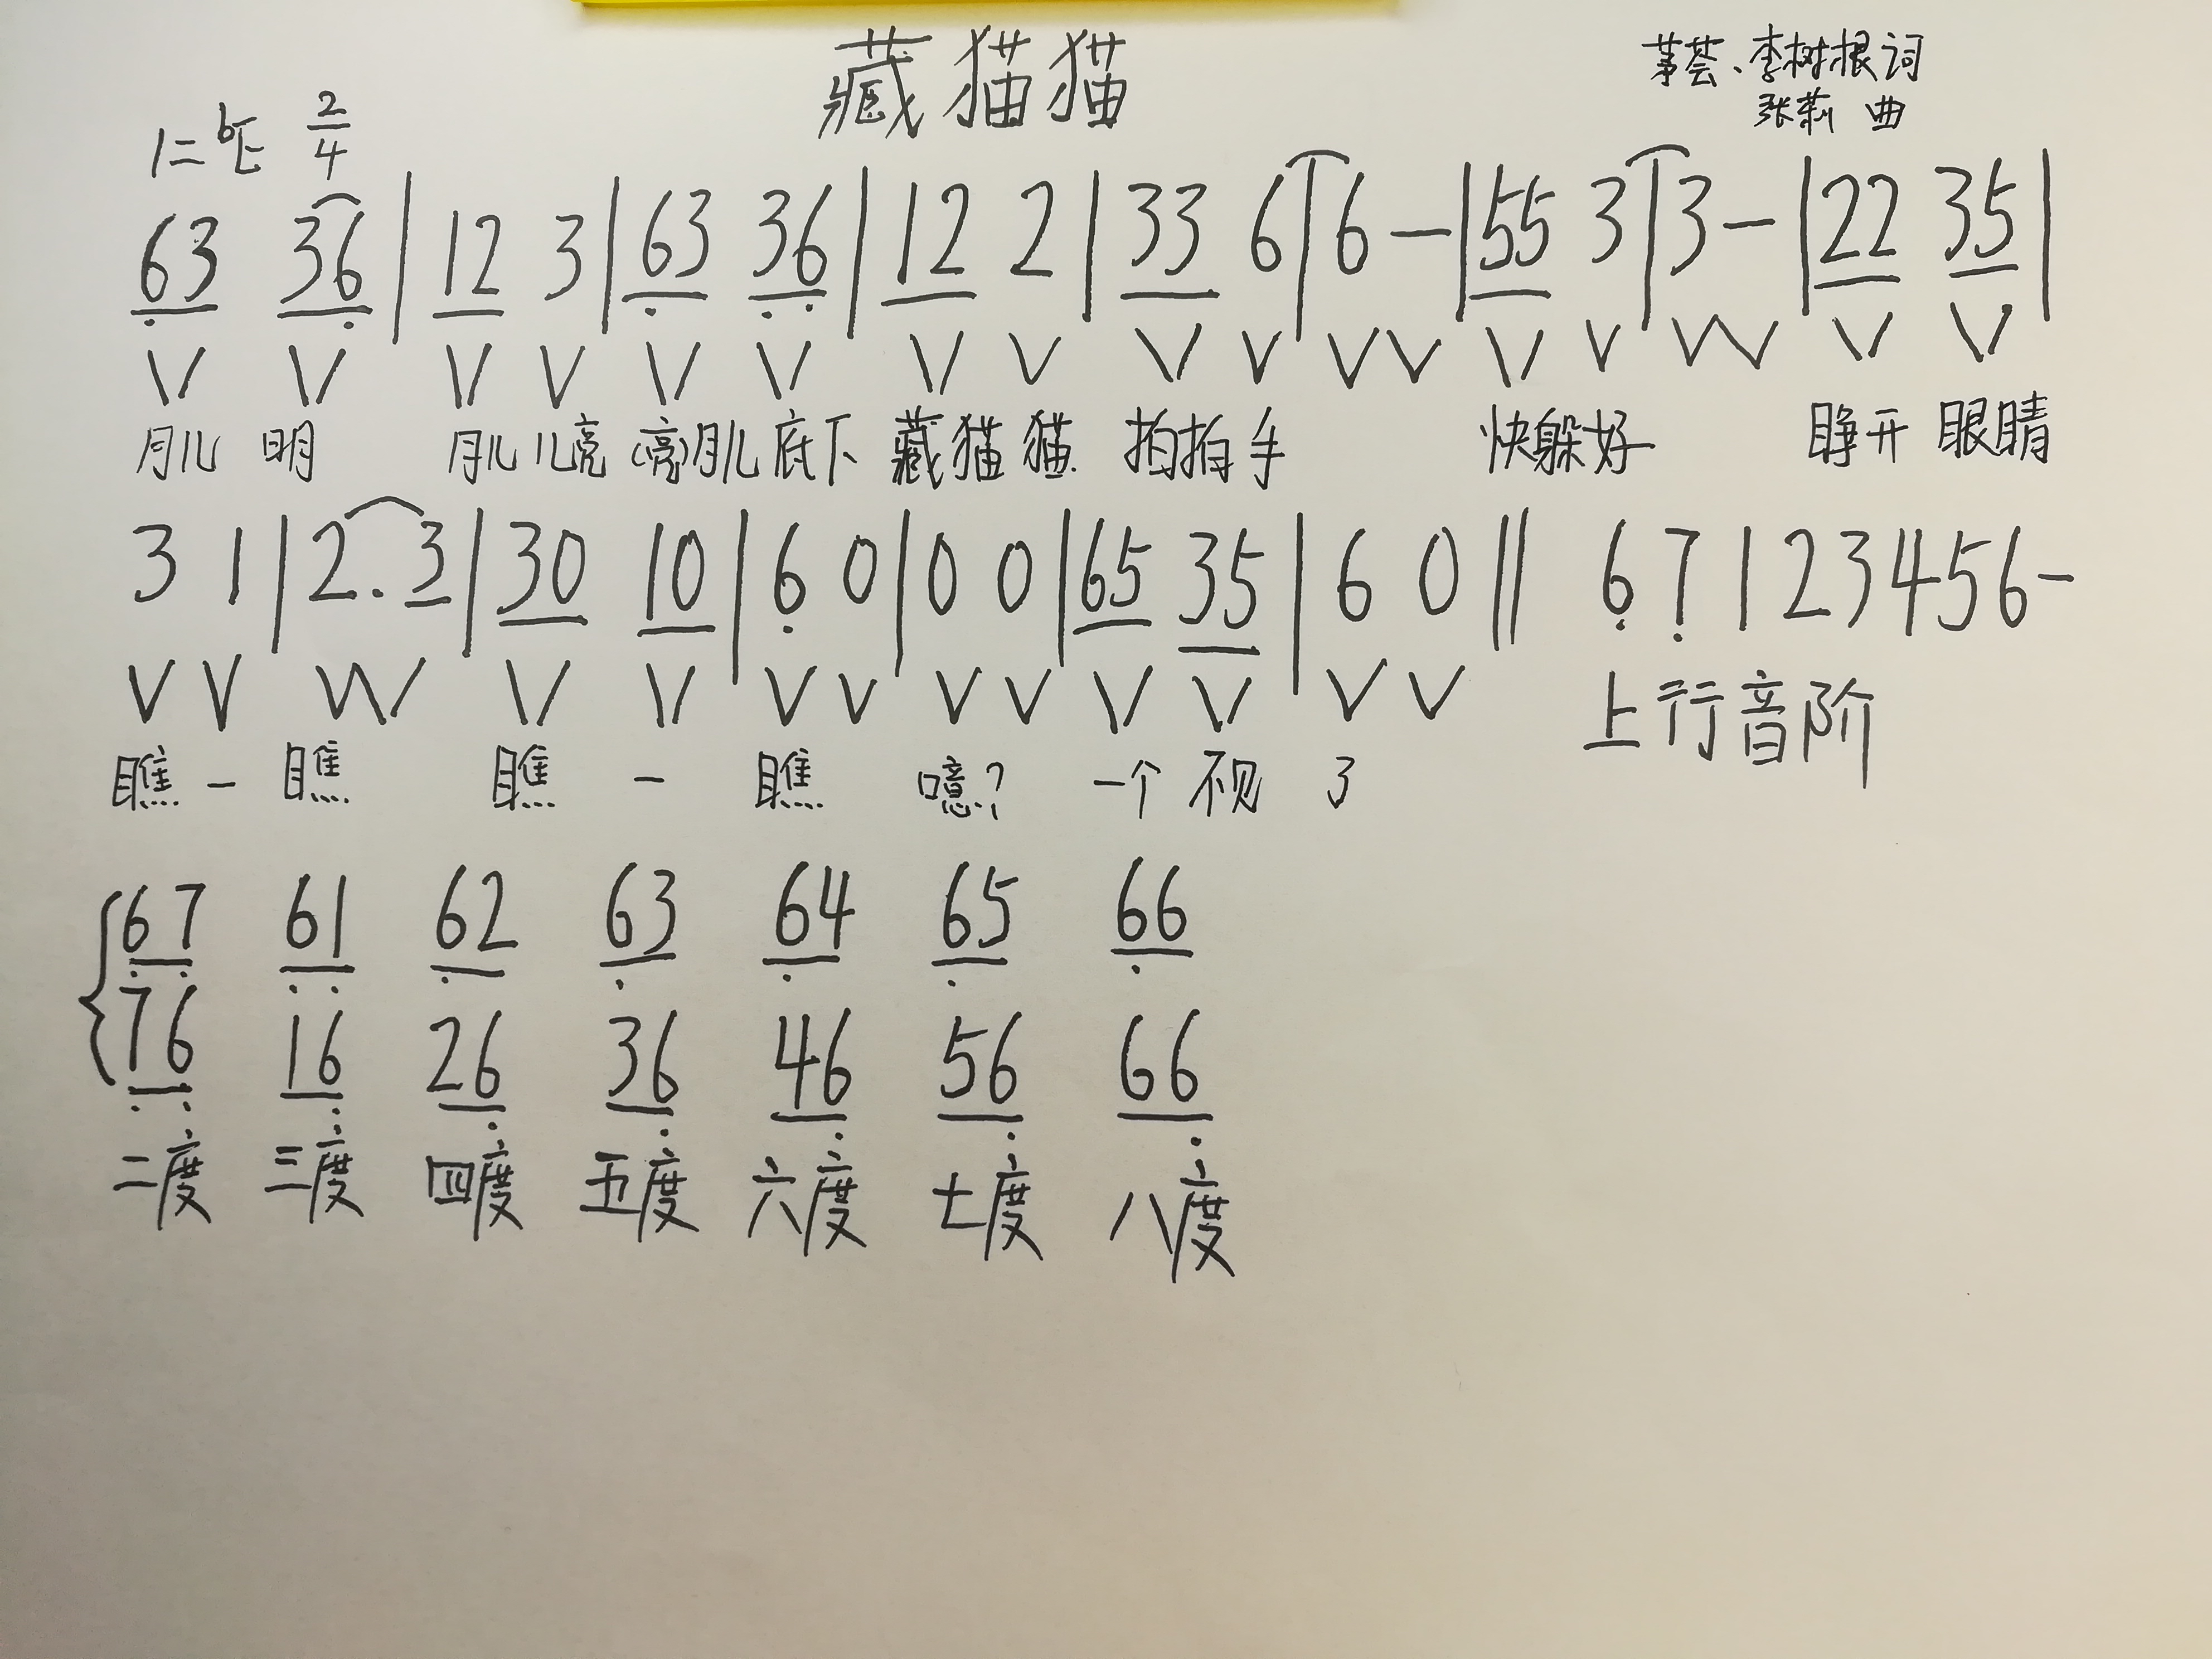 藏猫猫
茅荟、李树根词
张莉 曲
1=♭E 2/4
63 36 | 12 3 | 63 36 | 12 2 | 33 6 | 6 — | 55 3 | 3 — | 22 35 |
V V V V V V V V V V V V V V V V V V
月儿 明 月儿 儿亮(亮)月儿底下 藏猫猫 拍拍手 快躲好 睁开眼睛
3 1 | 2. 3 | 30 10 | 6 0 | 0 0 | 65 35 | 6 0 || 6 7 1 2 3 4 5 6 —
V V V V V V V V V V V V V V
上行音阶
瞧一瞧 瞧一瞧 噫? 一个不见了
67 61 62 63 64 65 66
76 16 26 36 46 56 66
二度 三度 四度 五度 六度 七度 八度